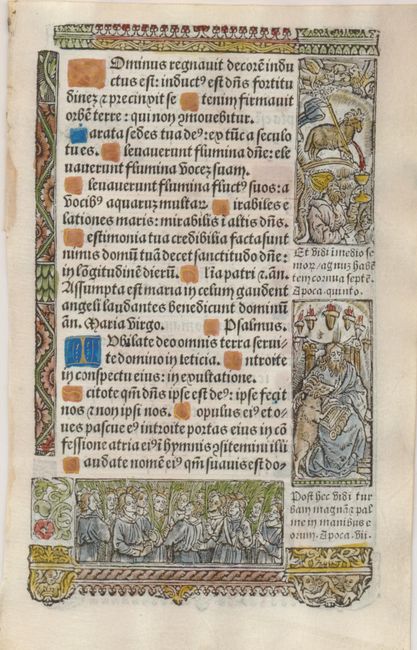 Ominus regnauit decorē indu
ctus est: induct⁹ est dn̄s fortitu
dinez ⁊ precinxit se tenim firmauit
orbē terre: qui non ɔmouebitur.
arata sedes tua de⁹: ex tūc a seculo
tu es. leuauerunt flumina dn̄e: ele
uauerunt flumina vocez suam.
leuauerunt flumina fluct⁹ suos: a
vocib⁹ aquaruz multaꝝ. irabiles e
lationes maris: mirabilis ī altis dn̄s.
estimonia tua credibilia facta sunt
nimis domū tuā decet sanctitudo dn̄e:
in lōgitudinē dierū. līa patri ⁊ . an̄.
Assumpta est maria in celum gaudent
angeli laudantes benedicunt dominū
an̄. Maria virgo. Psalmus.
Ubilate deo omnis terra serui
te domino in leticia. ntroite
in conspectu eius: in exultatione.
citote qm̄ dn̄s ipse est de⁹: ipse fecit
nos ⁊ non ipsi nos. opulus ei⁹ et o
ues pascue e⁹ introite portas eius in cō
fessione atria ei⁹ ī hymnis ɔfitemini illi
audate nomē ei⁹ qm̄ suauis est do-
Et vidi ī medio se
agnuz habē
tem cornua septē.
Apoca. quinto.
Post hec vidi tur
bam magnā ⁊ pal
me in manibus e
orum. Apoca. vii.